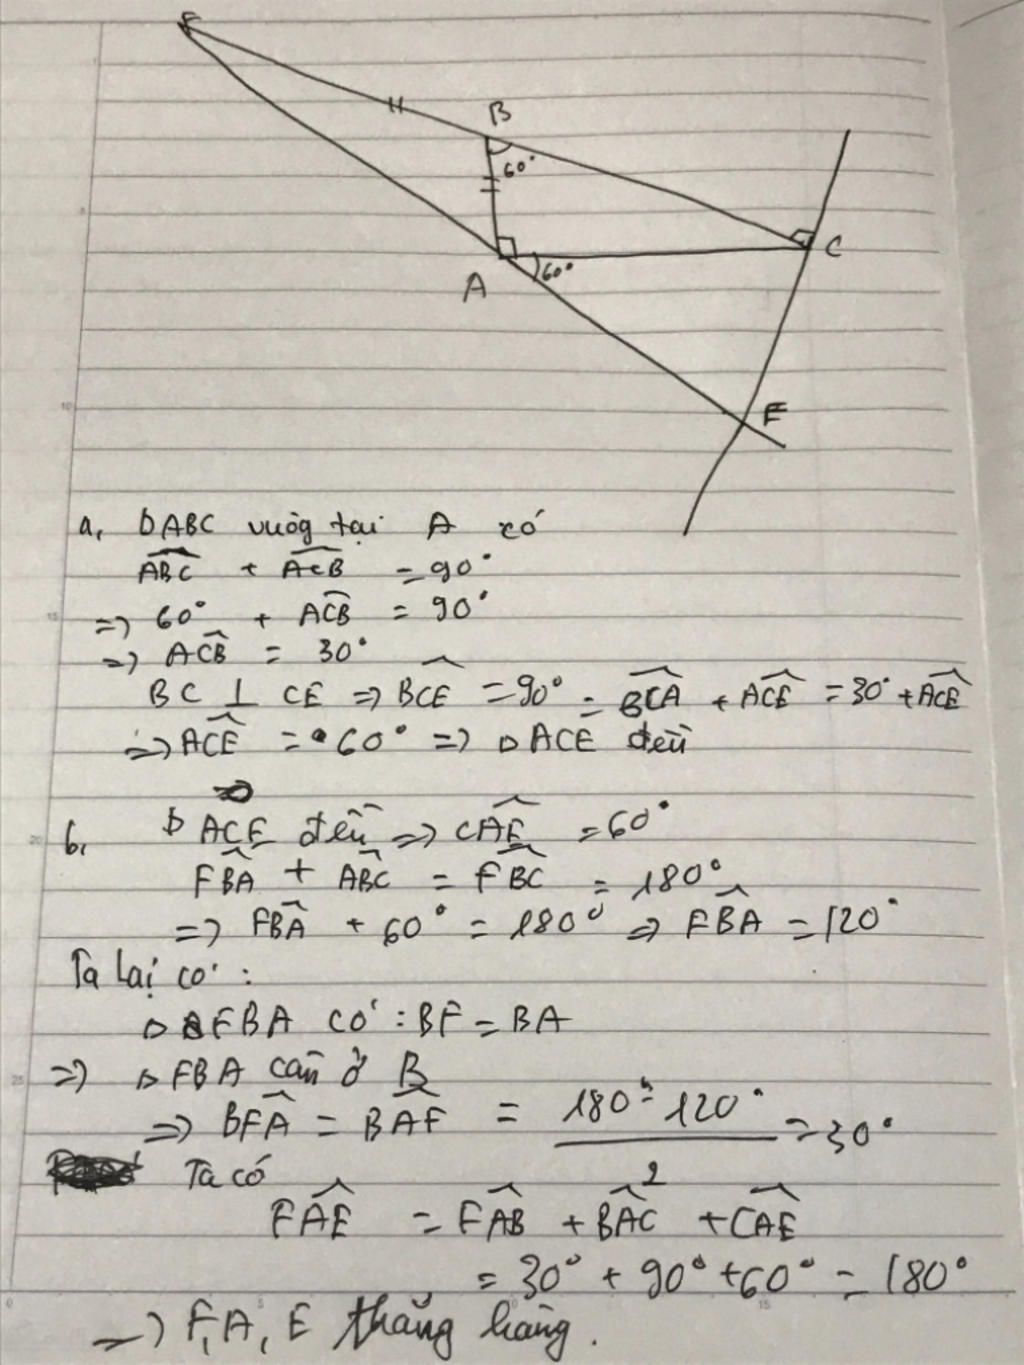 F
B
60°
C
A
60°
E
a, Δ ABC vuôg tại A có
ABC + ACB = 90°
=> 60° + ACB = 90°
=> ACB = 30°
BC ⊥ CE => BCE = 90° = BCA + ACE = 30° + ACE
=> ACE = 60° => Δ ACE đều
b, Δ ACE đều => CAE = 60°
FBA + ABC = FBC = 180°
=> FBA + 60° = 180° => FBA = 120°
Ta lại có :
Δ FBA có : BF = BA
=> Δ FBA cân ở B
=> BFA = BAF = 180° - 120° / 2 = 30°
Ta có
FAE = FAB + BAC + CAE
= 30° + 90° + 60° = 180°
=> F, A, E thẳng hàng.